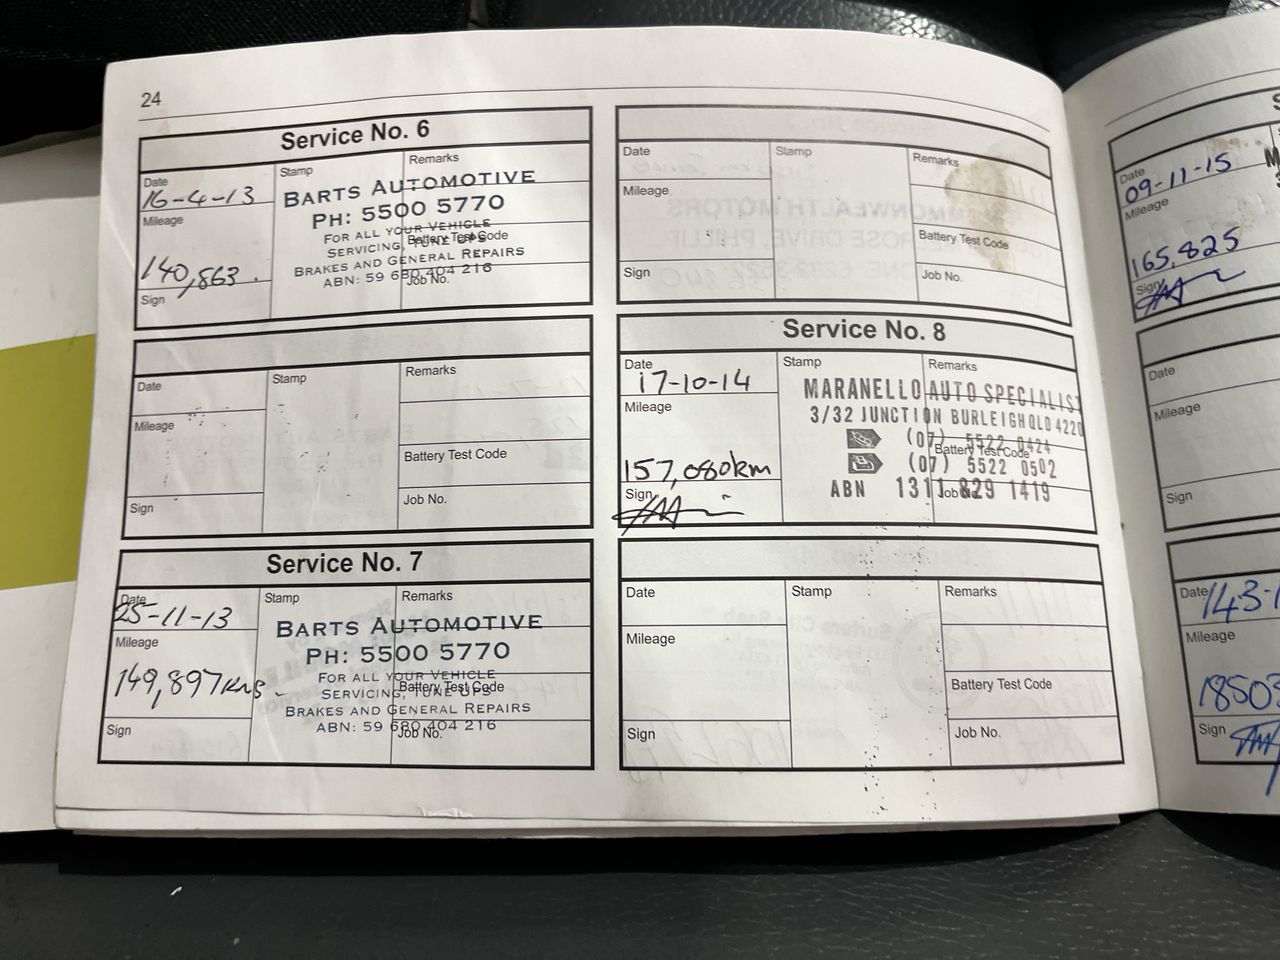 24
Service No. 6
Date
16-4-13
Mileage
140,863.
Sign
Stamp
Remarks
BARTS AUTOMOTIVE
PH: 5500 5770
FOR ALL YOUR VEHICLE
SERVICING, TUNE UPS
BRAKES AND GENERAL REPAIRS
ABN: 59 680 404 216
Battery Test Code
Job No.
Date
Mileage
Sign
Stamp
Remarks
Battery Test Code
Job No.
Service No. 7
Date
25-11-13
Mileage
149,897kms-
Sign
Stamp
Remarks
BARTS AUTOMOTIVE
PH: 5500 5770
FOR ALL YOUR VEHICLE
SERVICING, TUNE UPS
BRAKES AND GENERAL REPAIRS
ABN: 59 680 404 216
Battery Test Code
Job No.
Date
Mileage
Sign
Stamp
Remarks
Battery Test Code
Job No.
Service No. 8
Date
17-10-14
Mileage
157,080km
Sign
Stamp
Remarks
MARANELLO AUTO SPECIALIST
3/32 JUNCTION BURLEIGH QLD 4220
(07) 5522 0424
(07) 5522 0502
ABN 131 829 1419
Battery Test Code
Job No.
Date
Mileage
Sign
Stamp
Remarks
Battery Test Code
Job No.
Date
09-11-15
Mileage
165,825
Sign
Date
Mileage
Sign
Date
Mileage
Sign